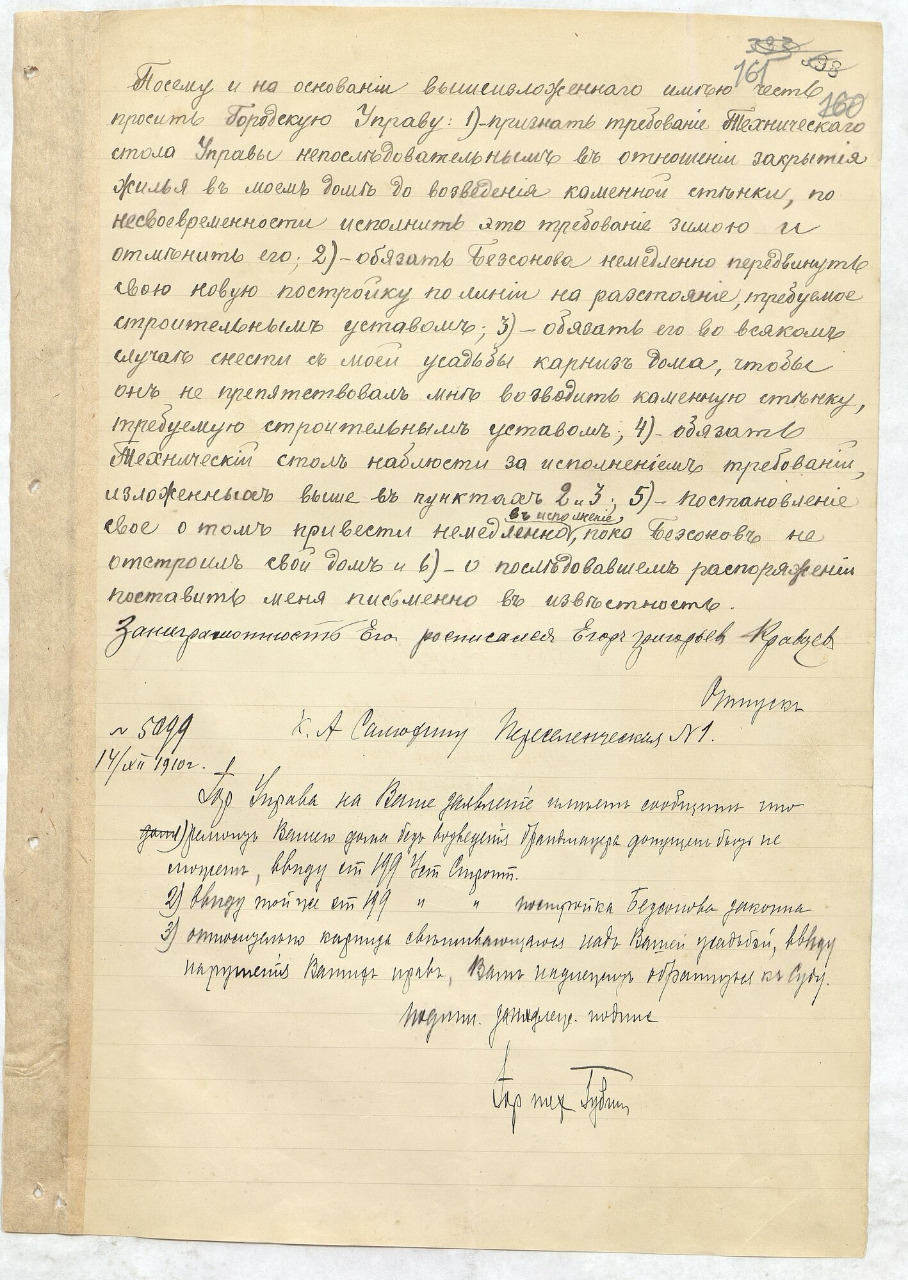 393 393
161
160
Посему и на основаніи вышеизложеннаго имѣю честь
просить Городскую Управу: 1)-признать требованіе Техническаго
стола Управы непослѣдовательнымъ въ отношеніи закрытія
жилья въ моемъ домѣ до возведенія каменной стѣнки, по
несвоевременности исполнить это требованіе зимою и
отмѣнить его; 2)-обязать Безсонова немедленно передвинуть
свою новую постройку по линіи на разстояніе, требуемое
строительнымъ уставомъ; 3)-обязать его во всякомъ
случаѣ снести съ моей усадьбы карнизъ дома, чтобы
онъ не препятствовалъ мнѣ возводить каменную стѣнку,
требуемую строительнымъ уставомъ; 4)-обязать
Техническій столъ наблюсти за исполненіемъ требованій,
изложенныхъ выше въ пунктахъ 2 и 3; 5)-постановленіе
свое о томъ привести немедленно въ исполненіе, пока Безсоновъ не
отстроилъ свой домъ и 6)-о послѣдовавшемъ распоряженіи
поставить меня письменно въ извѣстность.
Заниграмотность Его росписался Егоръ григорьев Кравцев
Отпускъ
№ 5099 Х. А Самофину Переселенческая №1.
14/XII 1910 г.
Гор Управа на Ваше заявленіе имѣетъ сообщить что
1) ремонтъ Вашего дома безъ возведенія брандмауера допущен быть не
можетъ, ввиду ст 199 Уст Строит.
2) Ввиду той же ст 199 " " постройка Безсонова законна
3) относительно карниза свѣшивающагося надъ Вашей усадьбой, ввиду
нарушенія Вашихъ правъ, Вамъ надлежитъ обратиться къ Суду.
подлин. за надлеж. подпис
Гор тех